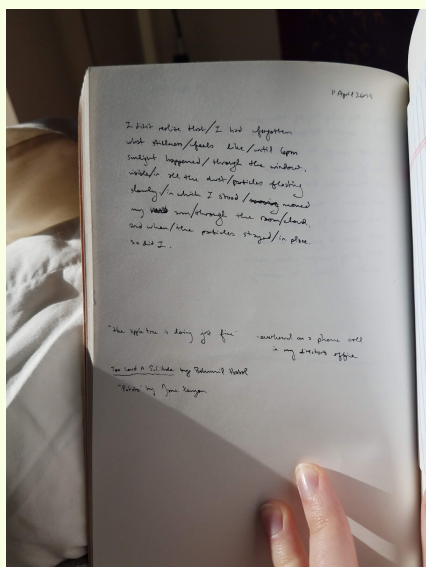 11 April 2019
I didn't realize that/I had forgotten
what stillness/feels like/until 6pm
sunlight happened/through the window,
visible/in all the dust/particles floating
slowly/in which I stood/ moved
my arm/through the room/cloud.
and when/the particles stayed/in place.
so did I.
"the apple tree is doing just fine" -overheard on a phone call
in my director's office
Too Loud A Solitude by Bohumil Hrabal
"Potato" by Jane Kenyon